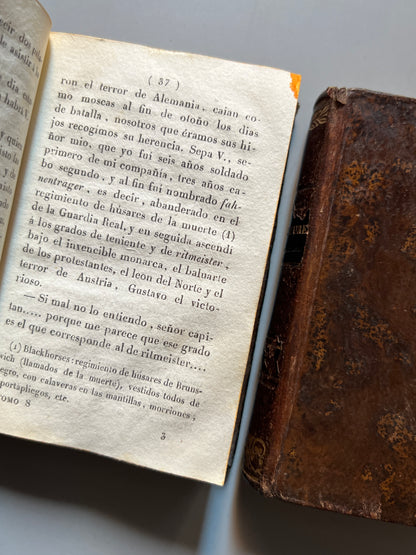 ( 37 )
ron el terror de Alemania, caian co
mo moscas al fin de otoño los dias
de batalla, nosotros que éramos sus hi
jos recogimos su herencia. Sepa V., se-
ñor mio, que yo fui seis años soldado
primero de mi compañía, tres años ca
bo segundo, y al fin fui nombrado fah-
nentrager, es decir, abanderado en el
regimiento de húsares de la muerte (1)
de la Guardia Real, y en seguida ascendi
á los grados de teniente y de ritmeister,
bajo el invencible monarca, el baluarte
de los protestantes, el leon del Norte y el
terror de Austria, Gustavo el victo-
rioso.
—Si mal no lo entiendo, señor capi-
tan.... porque me parece que ese grado
es el que corresponde al de ritmeister....
(1) Blackhorses: regimiento de húsares de Bruns-
wich (llamados de la muerte), vestidos todos de
negro, con calaveras en las mantillas, mocriones,
portapliegos, etc.
TOMO 8
3